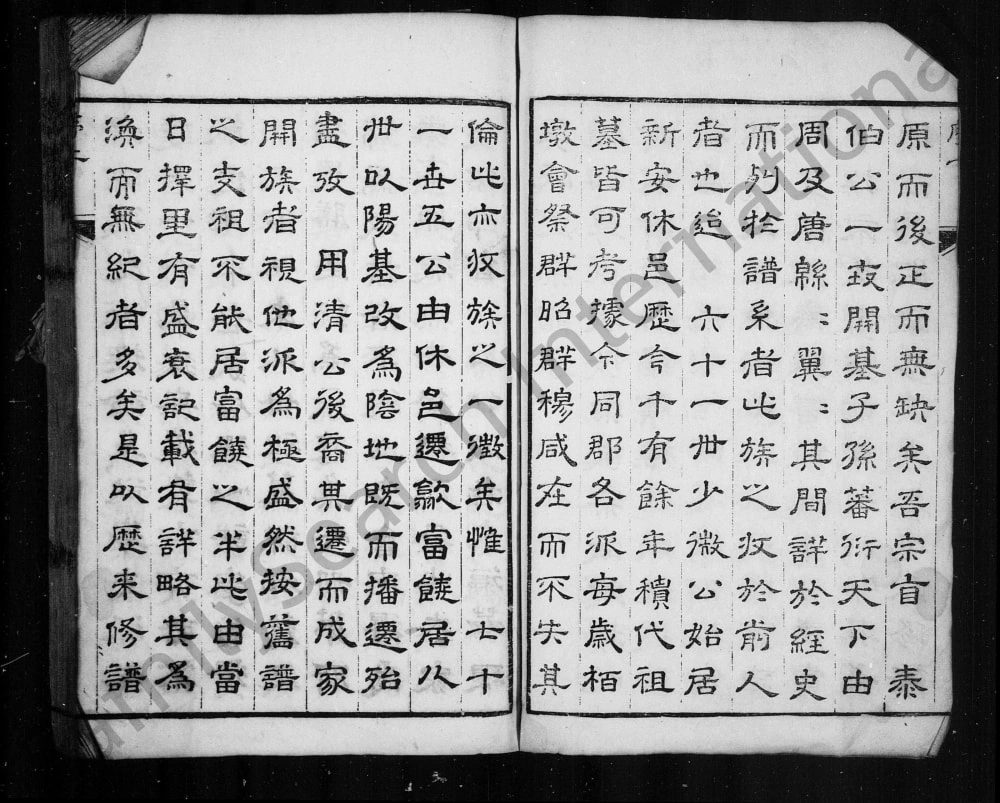 原而後正而無缺矣吾宗自　泰
伯公一𡨥開基子孫蕃衍天下由
周及唐緜〻翼〻其間詳於經史
而列於譜系者此族之攷於前人
者也迨　六十一世少微公始居
新安休邑歷今千有餘年積代祖
墓皆可考據今同郡各派每歲栢
墩會祭群昭群穆咸在而不失其
倫此亦攷族之一徵矣惟　七十
一世五公由休邑遷歙富饒居八
世以陽基改為陰地既而播遷殆
盡攷　用清公後裔其遷而成家
開族者視他派為極盛然按舊譜
之支祖不能居富饒之半此由當
日擇里有盛衰記載有詳略其為
渙而無紀者多矣是以歷来修譜
FamilySearch International